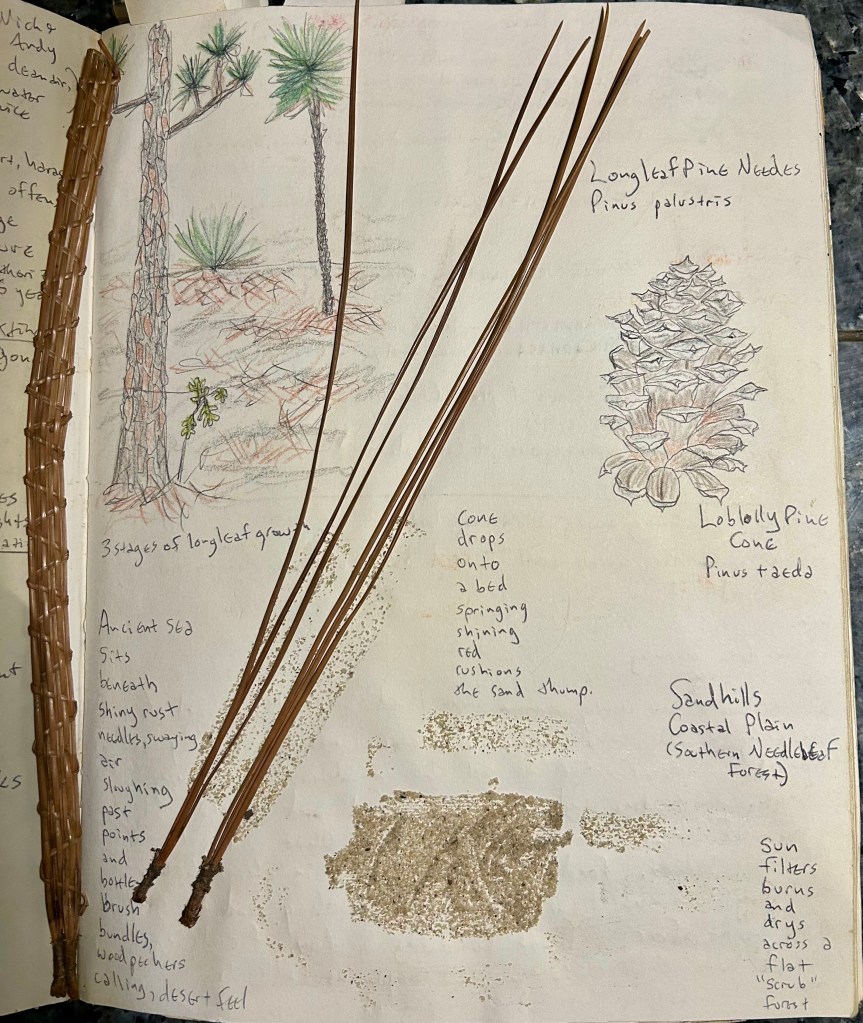 Nick &
Andy
water
Longleaf Pine Needes
Pinus palustris
3 stages of longleaf growth
Loblolly Pine
Cone
Pinus taeda
Cone
drops
onto
a bed
springing
shining
red
cushions
the sand thump.
Ancient Sea
Sits
beneath
shiny rust
needles, swaying
air
sloughing
past
points
and
bottle
brush
bundles,
woodpeckers
calling, desert feel
Sandhills
Coastal Plain
(Southern Needleleaf
Forest)
Sun
filters
burns
and
drys
across a
flat
"scrub"
forest